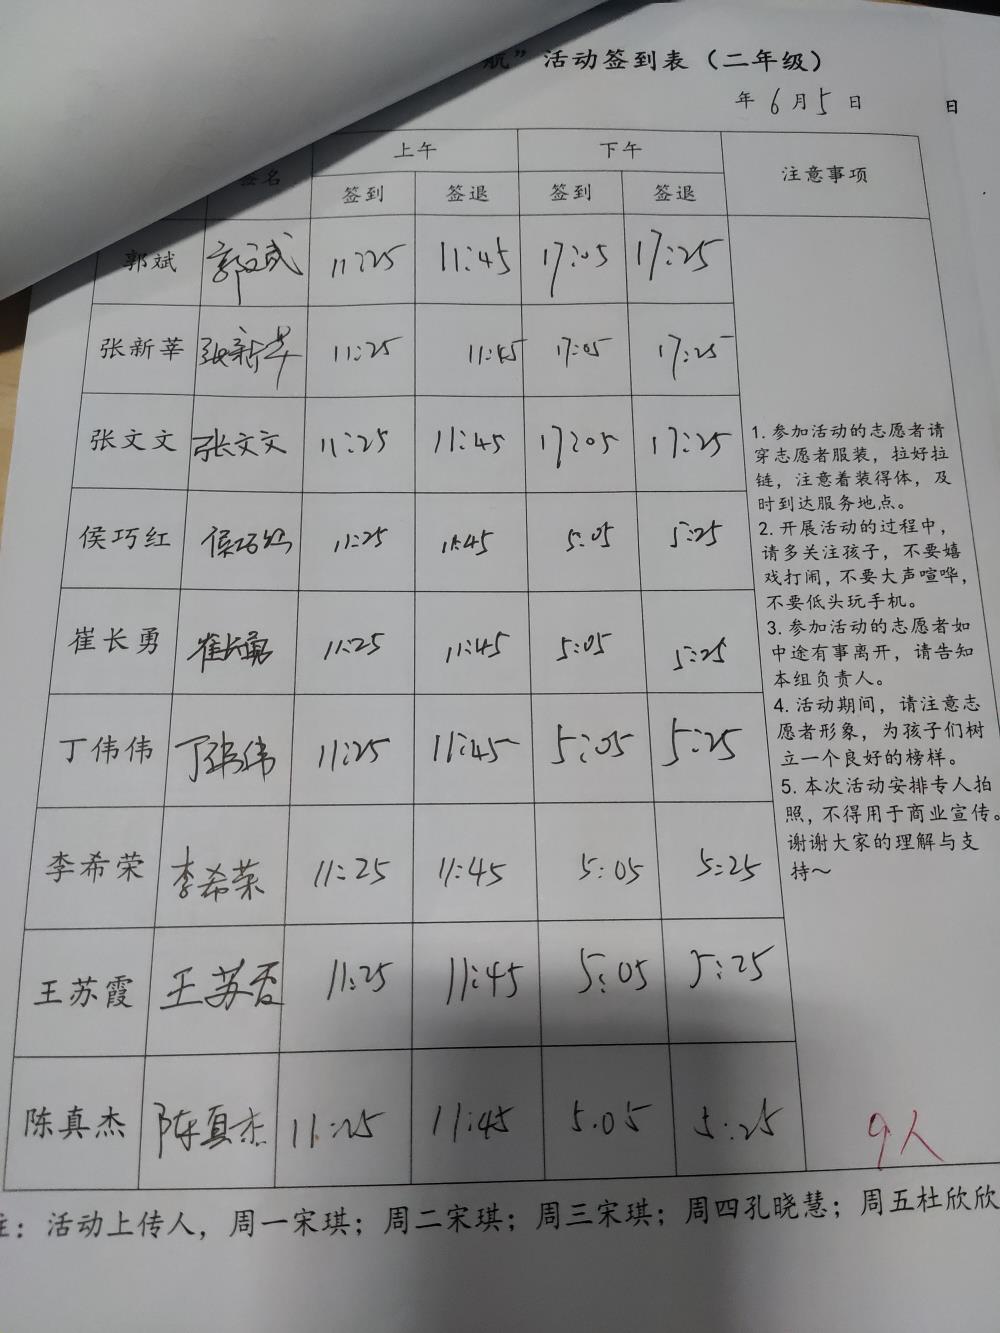 航”活动签到表（二年级）
年 6 月 5 日 日
签名 上午 下午 注意事项
签到 签退 签到 签退
郭斌 郭斌 11:25 11:45 17:05 17:25
张新莘 张新莘 11:25 11:45 17:05 17:25
张文文 张文文 11:25 11:45 17:05 17:25
侯巧红 侯巧红 11:25 11:45 5:05 5:25
崔长勇 崔长勇 11:25 11:45 5:05 5:25
丁伟伟 丁伟伟 11:25 11:45 5:05 5:25
李希荣 李希荣 11:25 11:45 5:05 5:25
王苏霞 王苏 11:25 11:45 5:05 5:25
陈真杰 陈真杰 11:25 11:45 5.05 5:25
1. 参加活动的志愿者请
穿志愿者服装，拉好拉
链，注意着装得体，及
时到达服务地点。
2. 开展活动的过程中，
请多关注孩子，不要嬉
戏打闹，不要大声喧哗，
不要低头玩手机。
3. 参加活动的志愿者如
中途有事离开，请告知
本组负责人。
4. 活动期间，请注意志
愿者形象，为孩子们树
立一个良好的榜样。
5. 本次活动安排专人拍
照，不得用于商业宣传。
谢谢大家的理解与支
持～
9人
注：活动上传人，周一宋琪；周二宋琪；周三宋琪；周四孔晓慧；周五杜欣欣